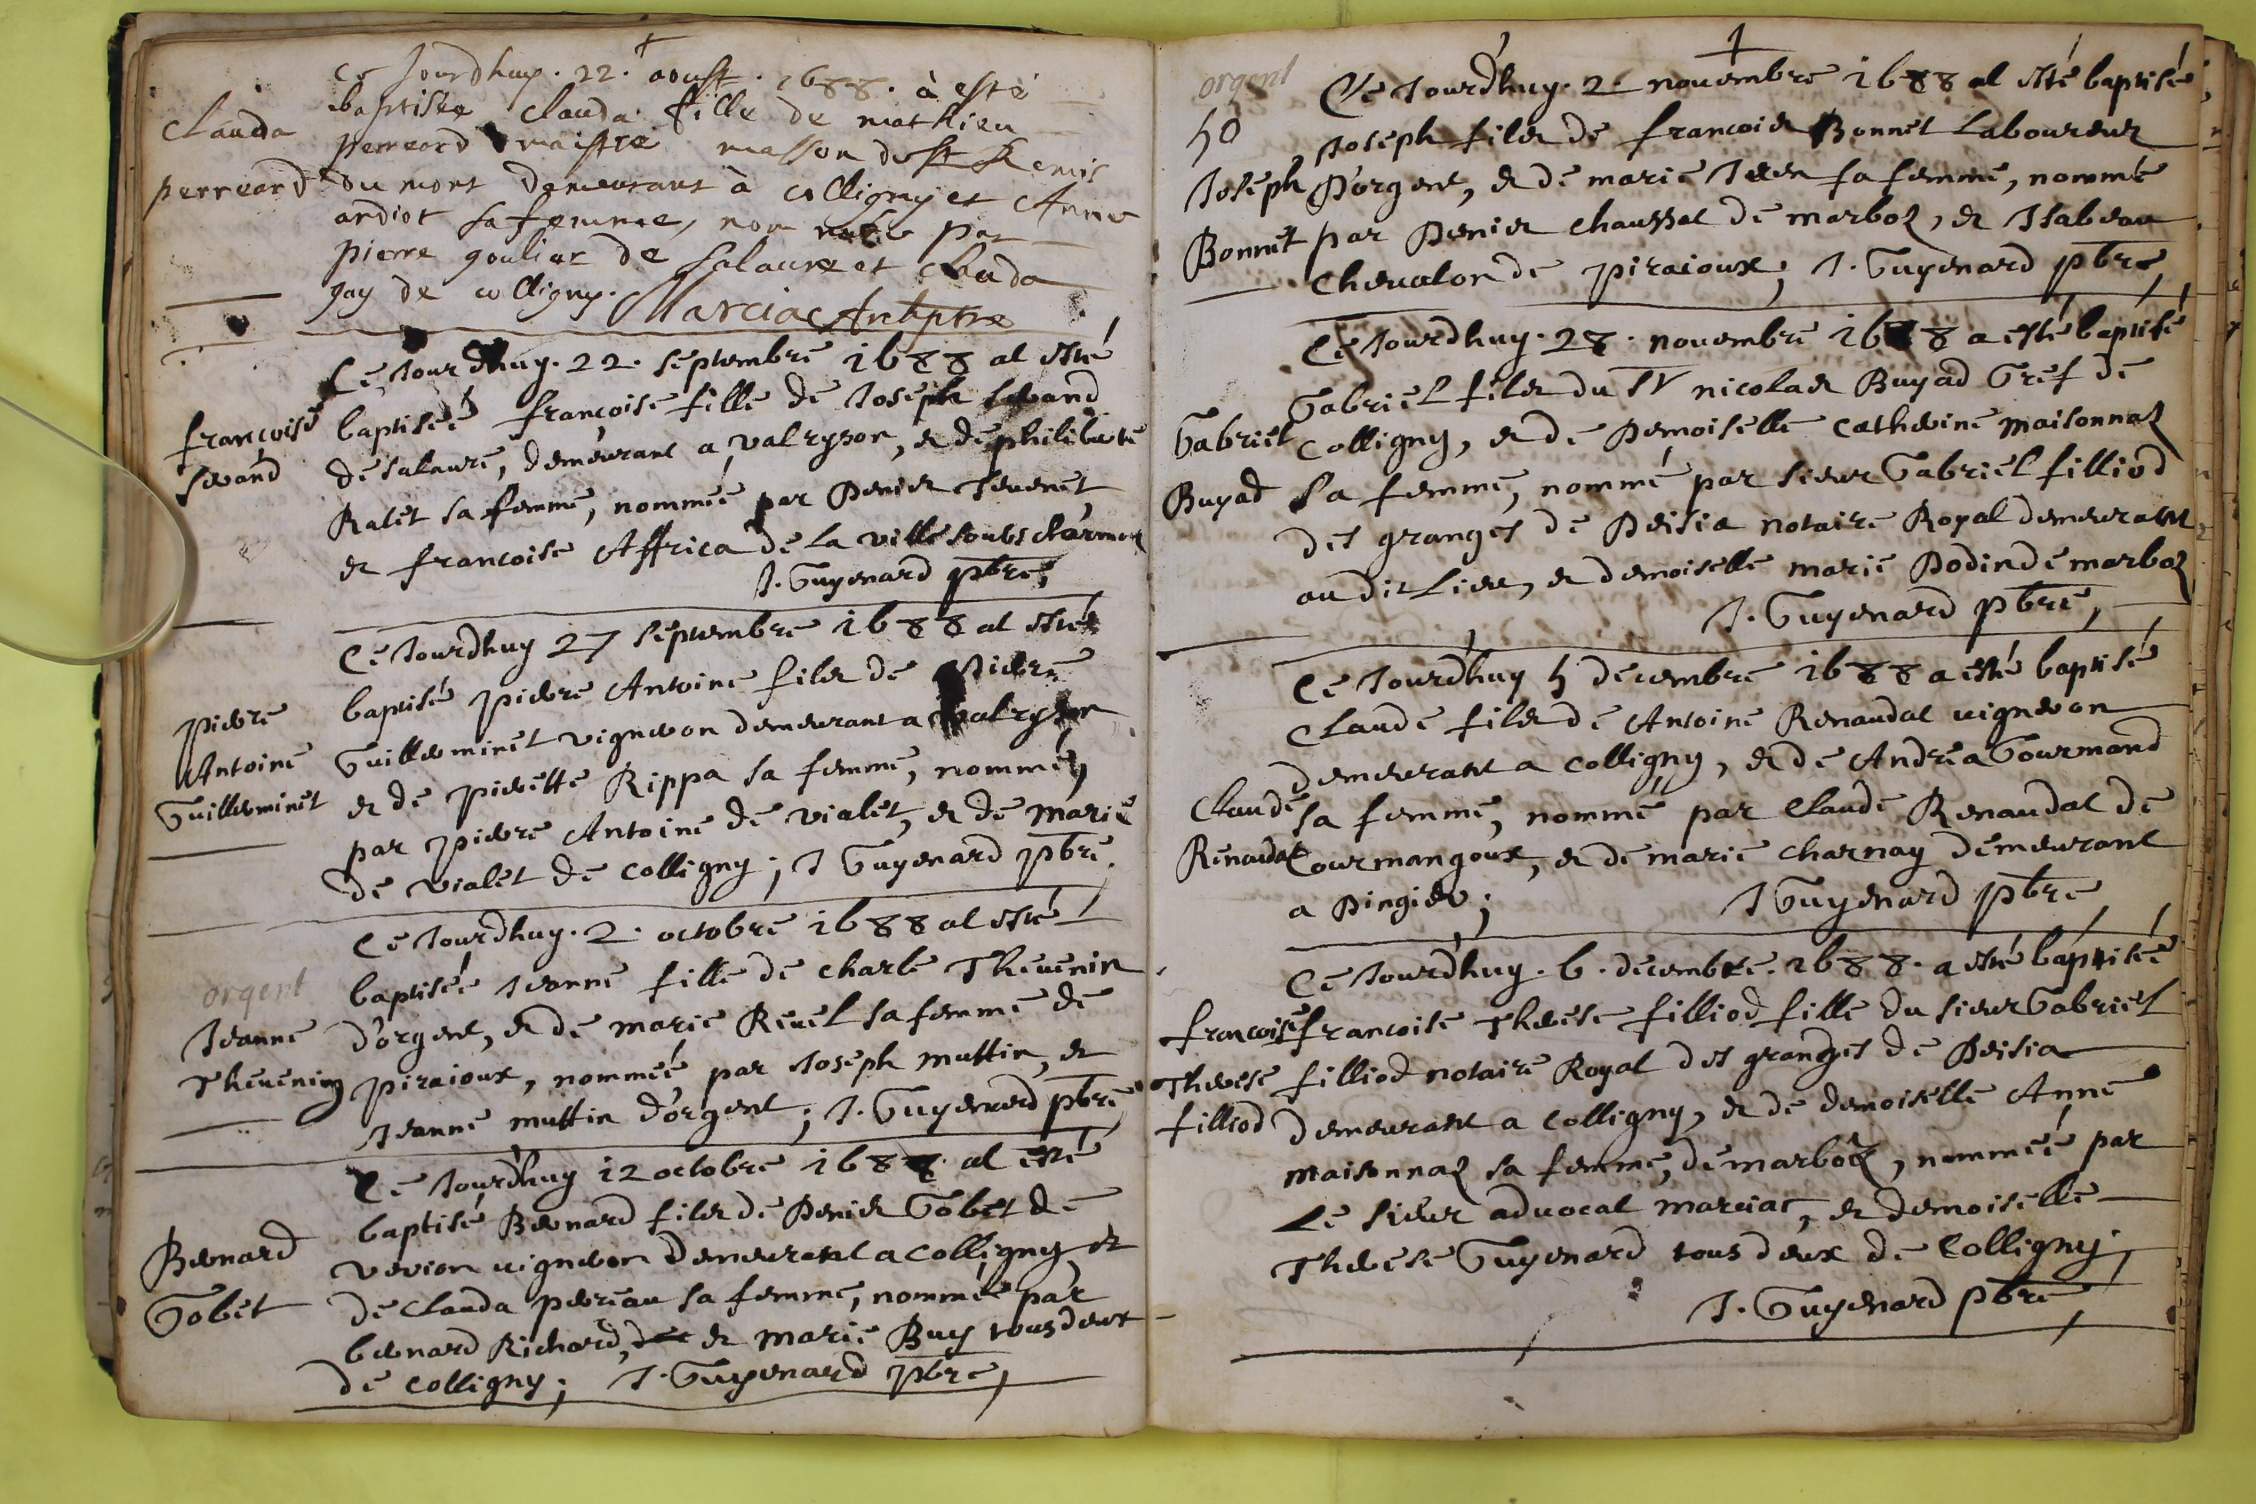 Ce Jourdhuy. 22. aoust. 1688. à esté
baptisée clauda fille de mathieu
Clauda
perreard maistre masson de st Remis
perreard
du mont demeurant à colligny et Anne
ardiot sa femme, nommée par
pierre goulier de salaure et clauda
gay de colligny. Marciac Antiptre
Ce Jourdhuy. 22. septembre 1688 al esté
baptiseé françoise fille de Joseph
francoise
de salaure, demeurant a valryson, et de philiberte
Ralet sa femme, nommeé par Denis Tevenet
et francoise Affrica de la ville soubs charmoz
J. Guyenard pbre,
Ce Jourdhuy 27 septembre 1688 al esté
baptisé pierre Antoine fils de pierre
pierre
Antoine
Guillerminet
Guillerminet vigneron demeurant a valryson
et de pierette Rippa sa femme, nommé,
par pierre Antoine de vialet, et de marie
de vialet de colligny; J Guyenard pbre,
Ce Jourdhuy. 2. octobre 1688 al esté
baptiseé Jeanne fille de charle Thevenin
orgent
Jeanne
Thevening
d'orgent, et de marie Revel sa femme de
piraioux, nommeé, par Joseph muttin, et
Jeanne muttin d'orgent; J. Guyenard pbre
Ce Jourdhuy 12 octobre 1688 al esté
baptisé Bernard fils de Denis Gobet de
Bernard
Gobet
verion vigneron demeurant a colligny et
de Clauda perreau sa femme, nommée par
bernard Richard, et marie Buy tous deux
de colligny; J. Guyenard pbre,
orgent
50
Ce Jourdhuy. 2. novembre 1688 al esté baptisée,
Joseph fils de francois Bonnet Laboureur
Joseph
Bonnet
D'orgent, et de marie Teven sa femme, nommé
par Denis chaussat de marboz, et Isabeau
Chevalon de piraioux; J. Guyenard pbre,
Ce Jourdhuy. 28. novembre 1688 a esté baptisé
Gabriel fils du Sr nicolas Buyad Gref de
Gabriel
Buyad
Colligny, et de Demoiselle catherine maisonnaz
sa femme, nommé par sieur Gabriel filliod
des granges de Deisia notaire Royal demeurant
audit Lieu, et demoiselle marie Dodin de marboz
J. Guyenard pbre,
Ce Jourdhuy 5 decembre 1688 a esté baptisé
Claude fils de Antoine Renaudat vigneron
demeurant a colligny, et de Andrea Gourmand
Claude
Renaudat
sa femme, nommé par Claude Renaudat de
Courmangoux, et de marie charnay demeurant
a Dingier; J Guyenard pbre,
Ce Jourdhuy. 6. decembre. 1688. a esté baptisée
francoise
Therese
filliod
francoise Therese filliod fille du sieur Gabriel
filliod notaire Royal des granges de Deisia
demeurant a colligny, et de demoiselle Anne
maisonnaz sa femme, de marboz, nommeé par
Le sieur advocat marciat, et demoiselle
Therese Guyenard tous deux de Colligny;
J. Guyenard pbre,